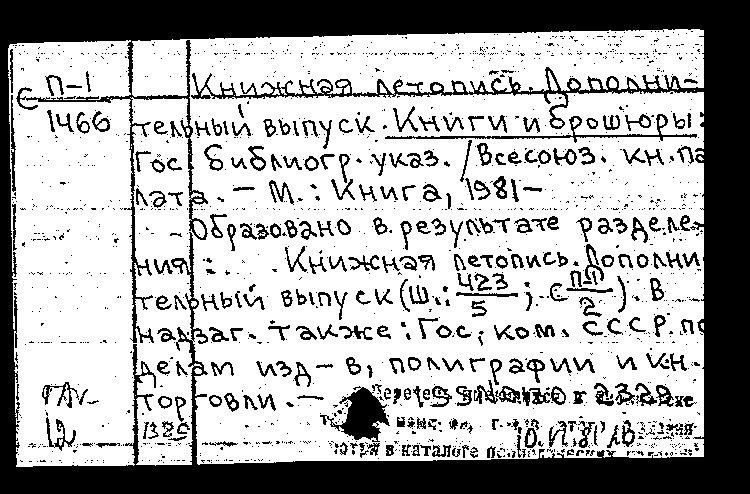 П-1
С 1466
Книжная летопись. Дополни-
тельный выпуск. Книги и брошюры:
Гос. библиогр. указ. / Всесоюз. кн. па
лата. — М.: Книга, 1981—
Образовано в результате разделе-
ния: Книжная летопись. Дополни
тельный выпуск (Ш.: 423/5; С ПП/2). В
надзаг. также: Гос. ком. СССР по
делам изд-в, полиграфии и кн.
торговли. —
12 1325
в каталоге